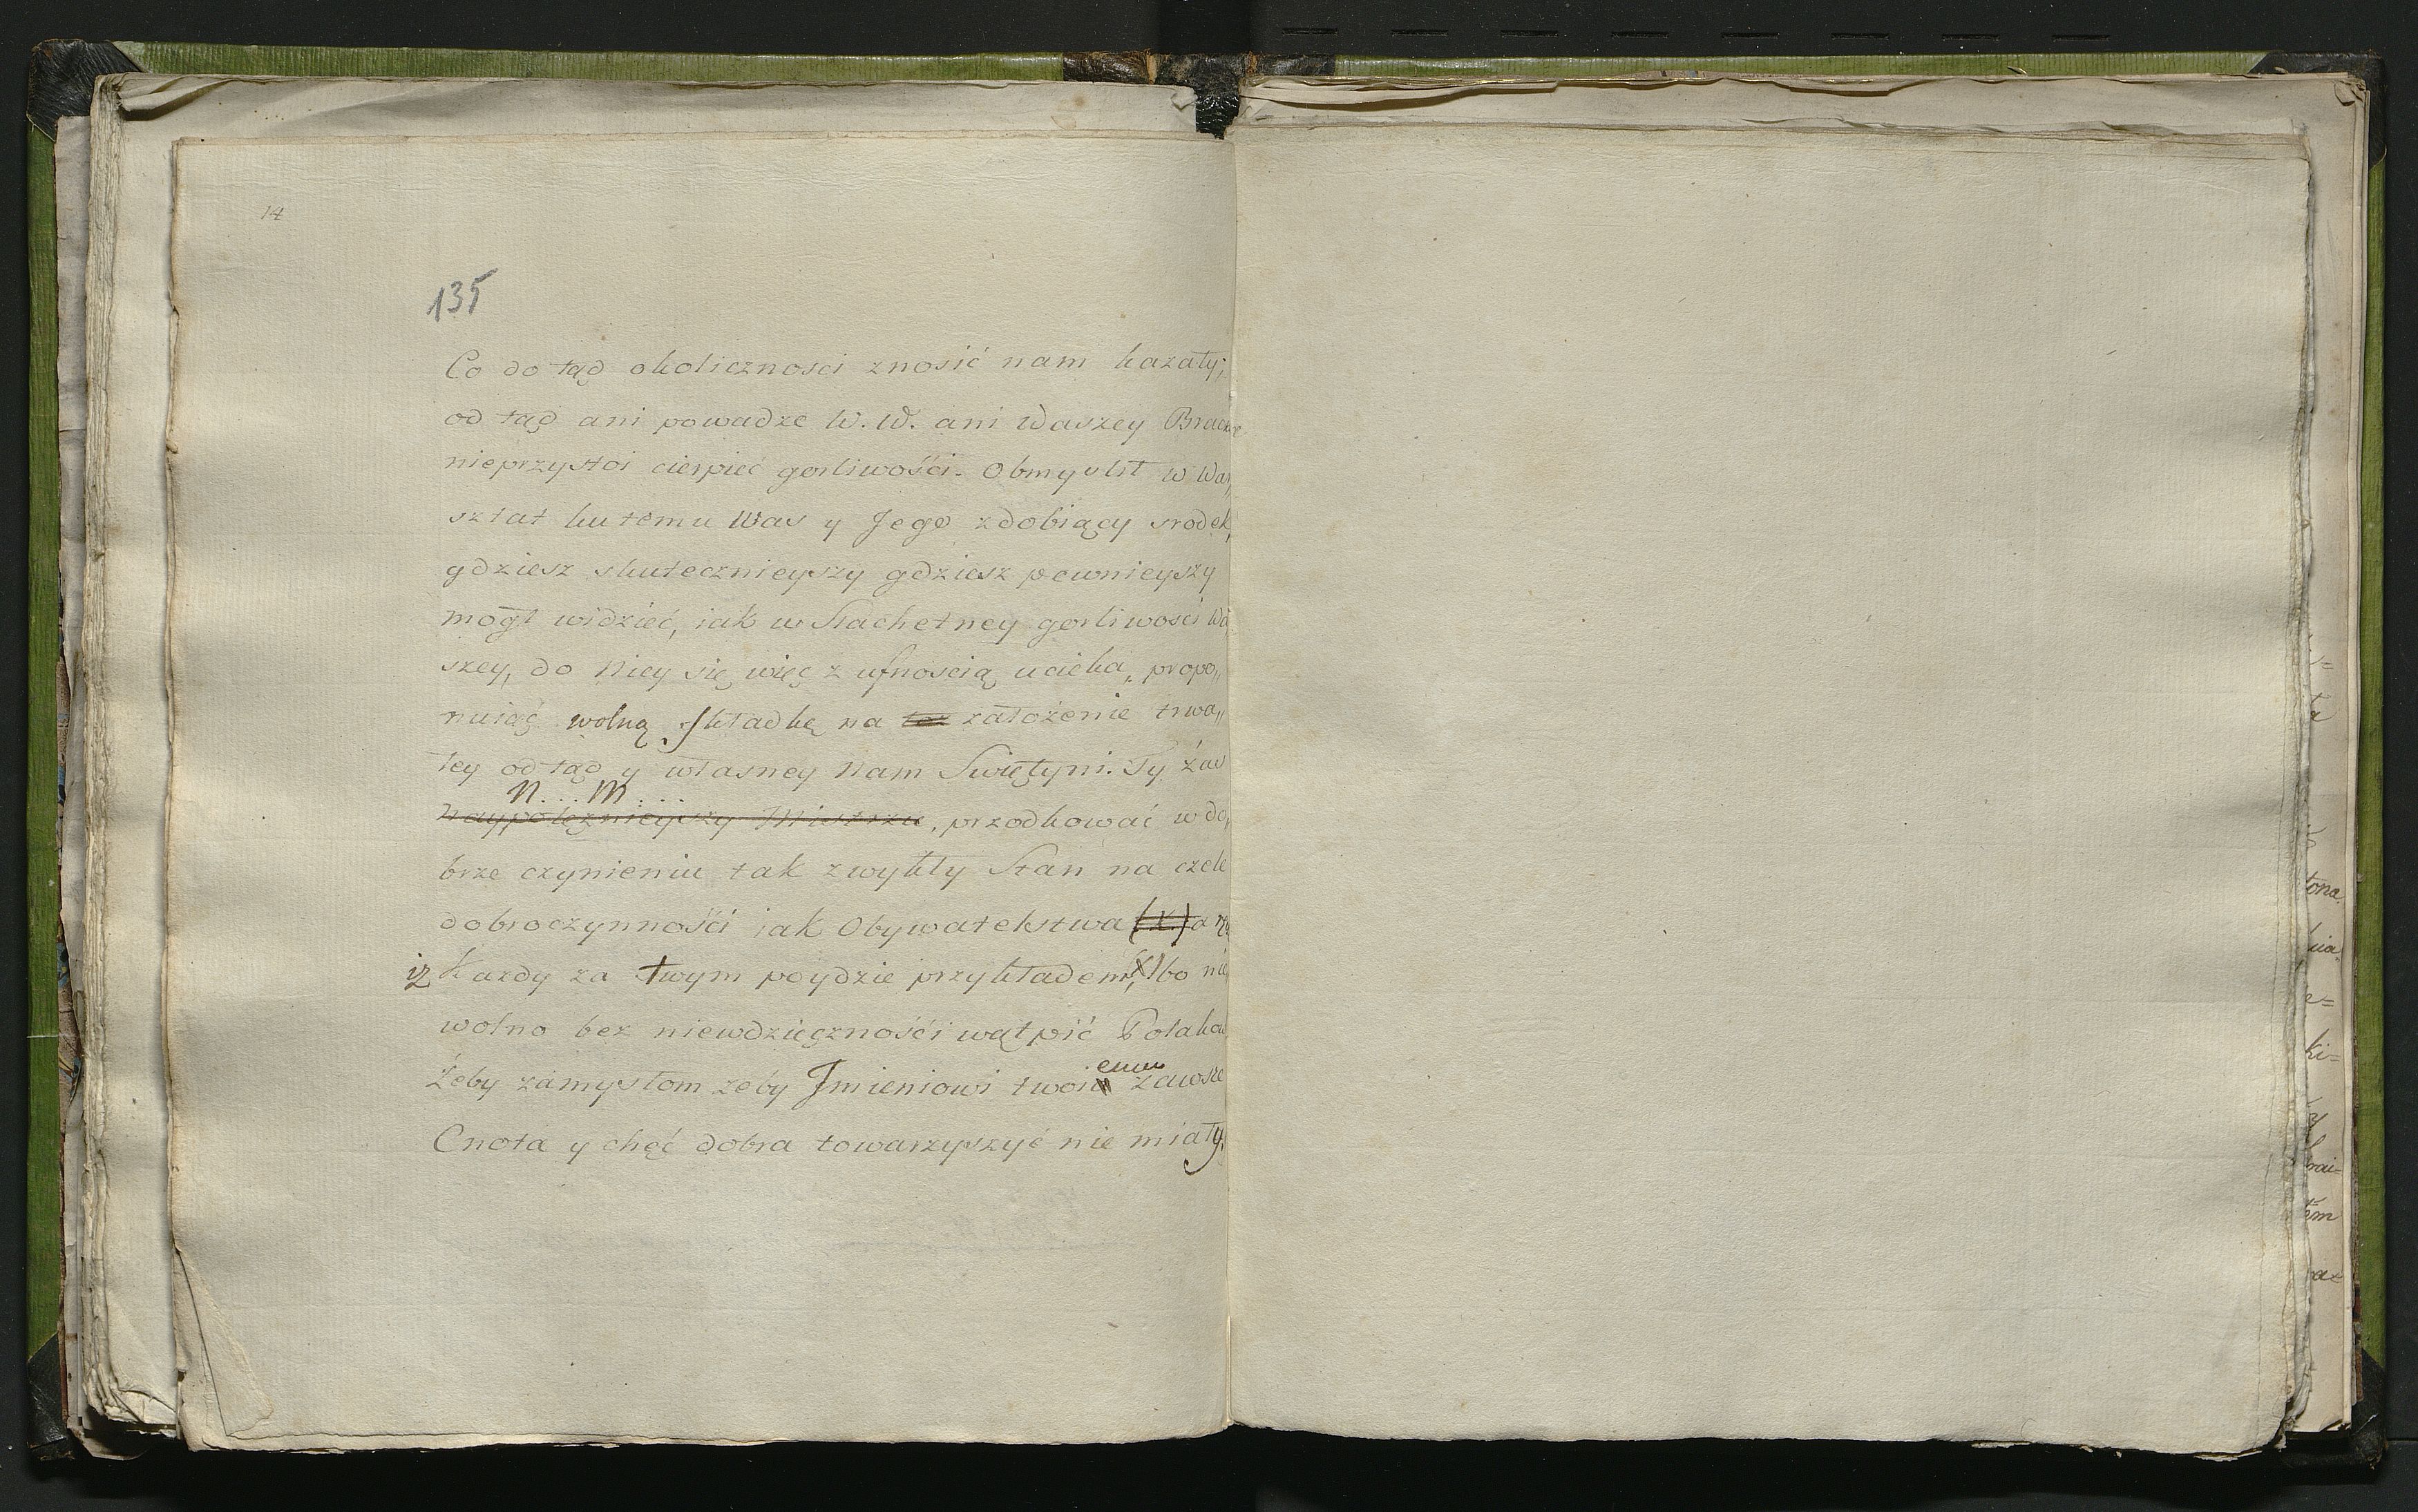 14
135
Co do tąd okolicznosci znosić nam kazały;
od tąd ani powadze W. W. ani Waszey Bracie
nieprzystoi cierpieć gorliwośći. Obmyslił w War„
sztat ku temu Was y Jego zdobiący srodek,
gdziesz skutecznieyszy gdziesz pewnieyszy
mogł widzieć, iak w Slachetney gorliwosci Wa
szey, do Niey się więc z ufnoscią ucieka, propo„
nuiąc wolną składkę na założenie trwa„
łey od tąd y własney Nam Swiętyni. Ty zas
N... M...
Naypotężnieyszy Mistrzu, przodkować w do„
brze czynieniu tak zwykły Stan na czele
dobroczynnośći iak Obywatelstwa (x) a
iż Kazdy za twym poydzie przykładem, (x) bo nie
wolno bez niewdzięcznośći wątpić Polakow
emu
Żeby zamysłom zeby Jmieniowi twoi zawsze
Cnota y chęć dobra towarzyszyć nie miały.
tona
ki=
rai=